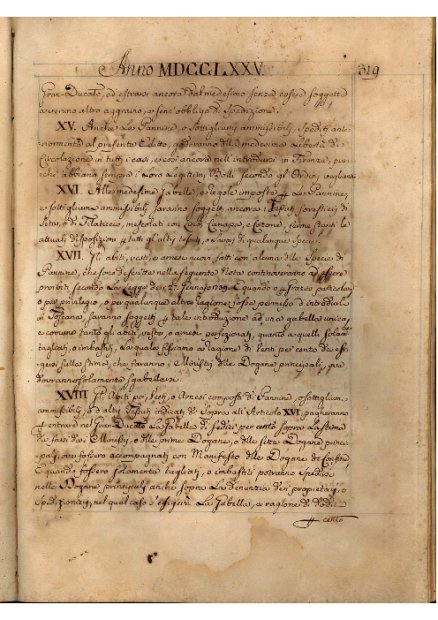 Anno MDCCLXXV. 319
Gran-Ducato, ed estrarsi ancora dal medesimo senza essere soggetti
a veruno altro aggravio, o senz' obbligo di Spedizione.
XV. Anche le Pannine, o Sottigliumi ammissibili, spediti ante-
riormente al presente Editto, goderanno della medesima Libertà di
Circolazione in tutti i casi, e così ancora nell' introdursi in Firenze, pur-
chè abbiano sempre i loro respettivi Bolli secondo gli Ordini, vegliano
XVI. Alle medesime Gabelle, e regole imposte per le Pannine,
e sottigliumi ammissibili saranno soggetti ancora i Tessuti, forestieri di
Seta, o di Filaticcio, mescolati con Lino, Canapa, e Cotone, ferme stanti le
attuali disposizioni per tutti gli altri tessuti, o Lavori di qualunque specie.
XVII. Gli abiti, vesti, o arnesi nuovi fatti con alcuna delle Specie di
Pannine, che sono descritte nella seguente Nota
proibiti secondo la Legge de' 27. Gennajo 1739. Quando o per grazia particolare,
o per privilegio, o per qualunque altra ragione fosse permesso d' introdurle
in Toscana, saranno soggetti per tale introduzione ad una gabella unica,
e comune tanto agli abiti, vesti, o arnesi perfezionati, quanto a quelli solam.
tagliati, o imbastiti, la quale fissiamo a ragione di Venti per cento da esi-
gersi sulla stima, che faranno i Ministri delle Dogane principali, ove
dovranno solamente sgabellarsi.
XVIII. Gli Abiti per Vesti, o Arnesi composti di Pannine, o sottigliumi
ammissibili, o d' altri Tessuti indicati di sopra all' Articolo XVI. pagheranno
per entrare nel Gran-Ducato la Gabella di sedici per cento sopra la stima
da farsi dai Ministri, o delle prime Dogane, o delle altre Dogane princi-
pali, ove fossero accompagnati con Manifesto delle Dogane di Confine,
E quando fossero solamente tagliati, o imbastiti potranno spedirsi
nelle Dogane principali anche sopra la denunzia dei proprietarj, o
Spedizionieri, nel qual caso s' esigerà la Gabella, a ragione di dodici
per cento